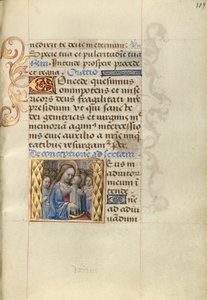 119
Specie tua et pulcritudine tua
Intende prospere procede
et regna. Oratio
Concede quesumus
omnipotens et mise
ricors deus fragilitati nr̄e
presidium ut qui sancte de
i genitricis et uirginis m
memoria agimus intercessio
nis eius auxilio a nr̄is iniq
tatibus resurgamus per
De conceptione ad sextam
Deus in
adiutori
um meum i
ntende
Domine ad
adiu
uandum